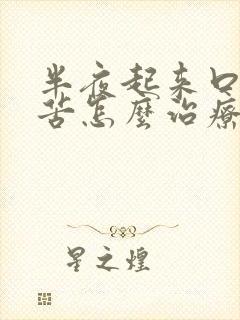 半夜起来口
苦怎麼治療
星之煌